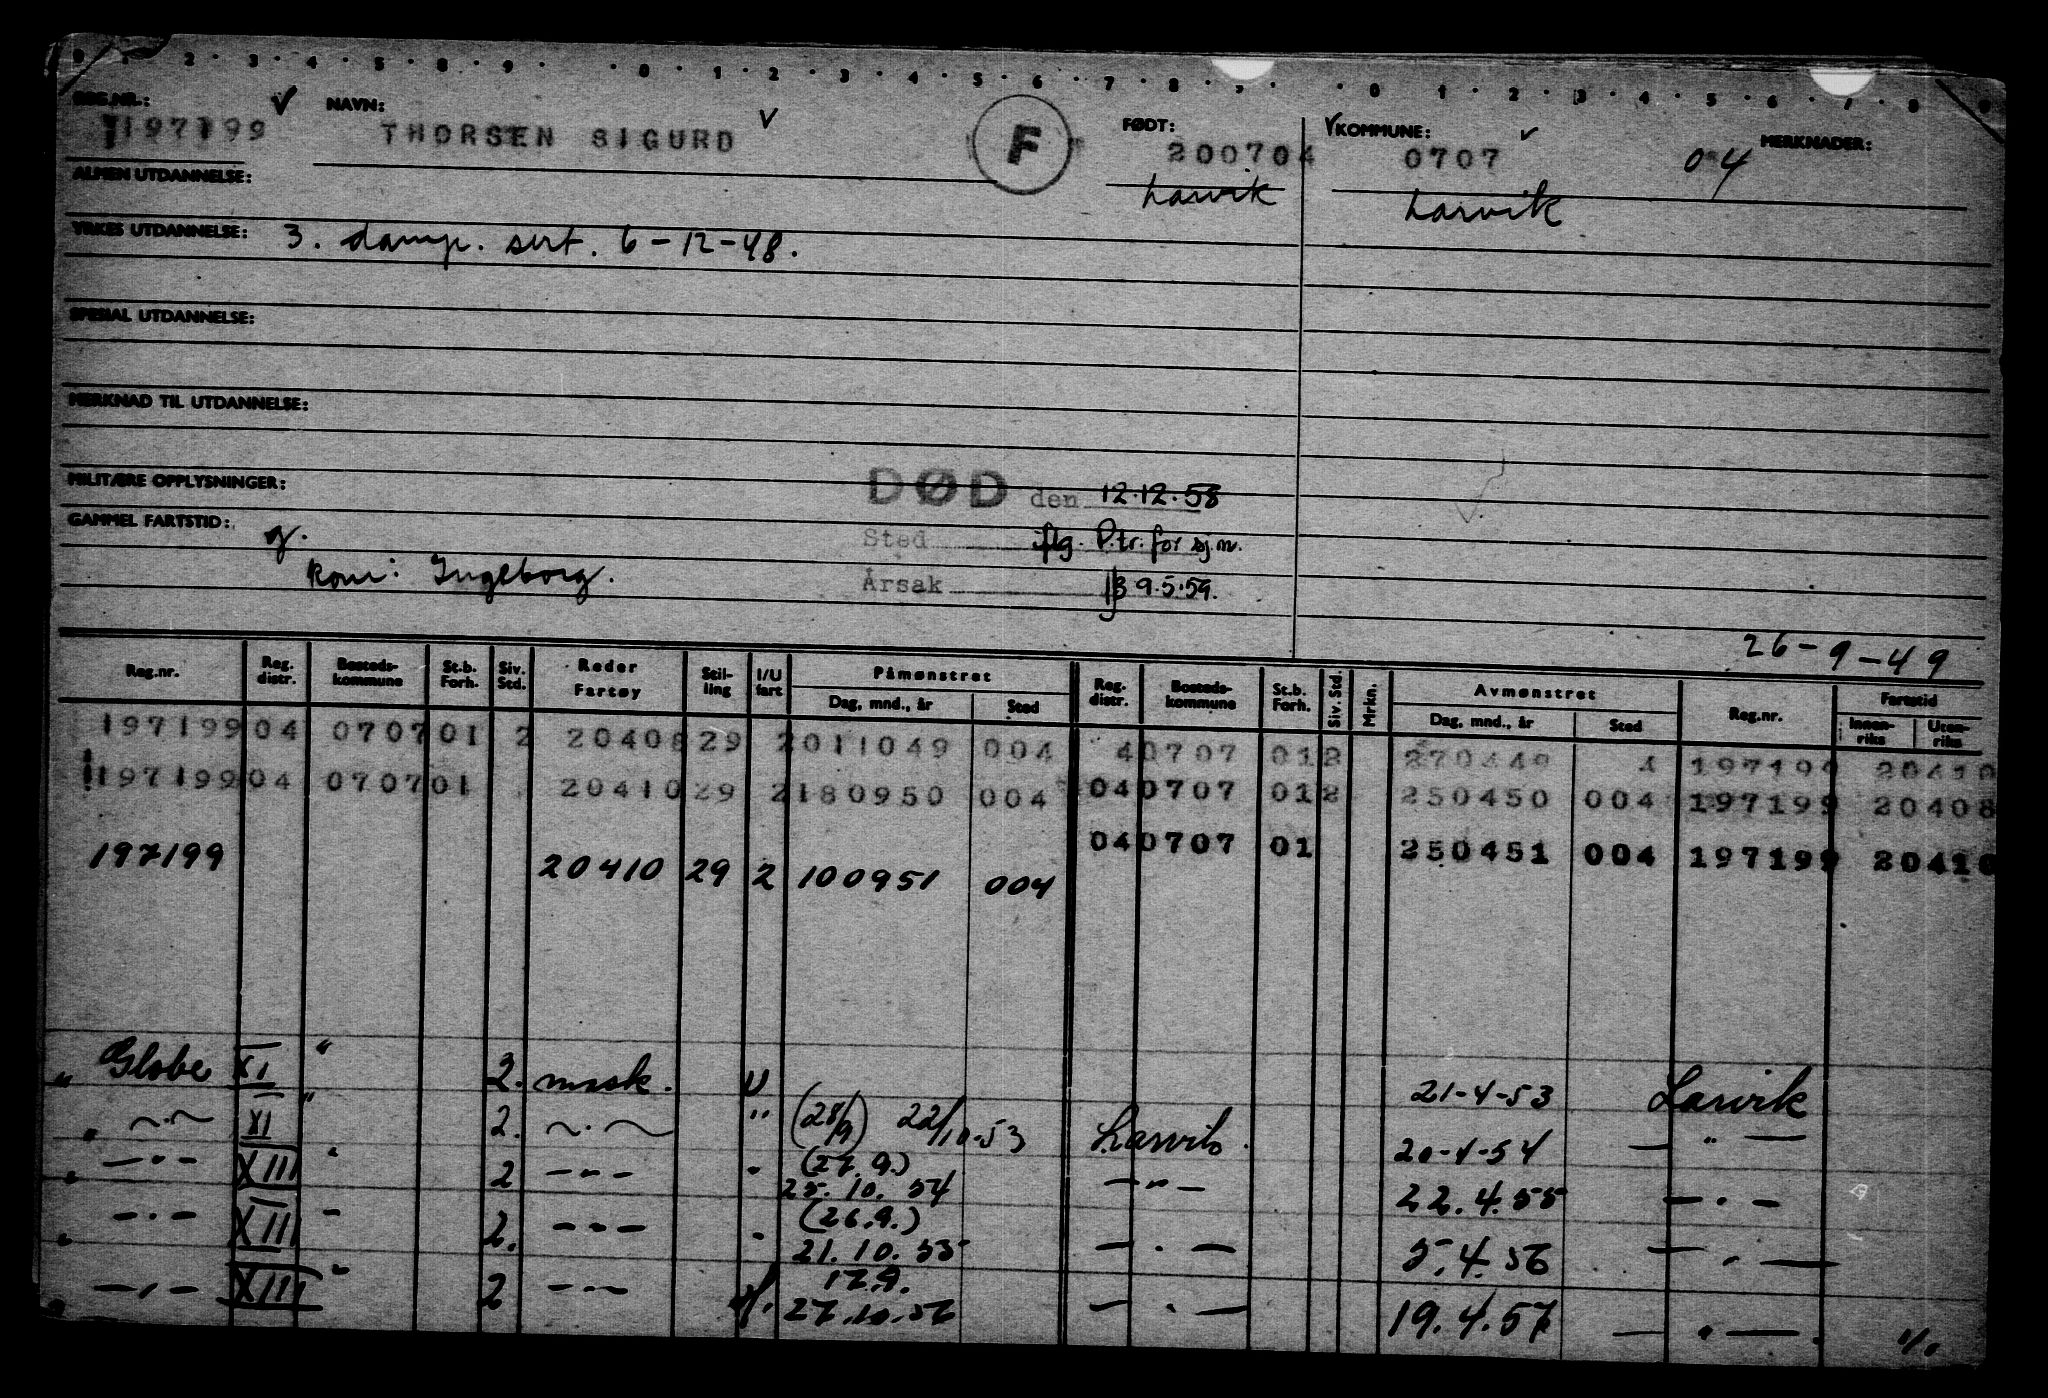 0 1 2 3 4 5 8 9 0 1 2 3 4 5 6 7 8 9 0 1 2 3 4 5 6 7 8 9
REG.NR.: NAVN: FØDT: KOMMUNE: MERKNADER:
197199 THORSEN SIGURD F 200704 0707 04
Larvik Larvik
ALMEN UTDANNELSE:
YRKES UTDANNELSE: 3. damp. sert. 6-12-48.
SPESIAL UTDANNELSE:
MERKNAD TIL UTDANNELSE:
MILITÆRE OPPLYSNINGER: DØD den 12.12.58
GAMMEL FARTSTID: g. Sted flg. P.tr. for sj.m.
kone: Ingeborg. Årsak 9.5.59.
26-9-49
Reg.nr. Reg. distr. Bosteds-kommune St.b. Forh. Siv. Std. Reder Fartøy Stil-ling I/U fart Påmønstret Dag, mnd., år Sted Reg. distr. Bosteds-kommune St.b. Forh. Siv. Std. Mrkn. Avmønstret Dag, mnd., år Sted Reg.nr. Fartstid Innen-riks Uten-riks
197199 04 0707 01 2 20408 29 2 011049 004 4 0707 01 2 270449 4 197199 20410
197199 04 0707 01 20410 29 2 180950 004 04 0707 01 2 250450 004 197199 20408
04 0707 01 250451 004 197199 20410
197199 20410 29 2 100951 004
" Globe XI " 2. mask. U 21-4-53 Larvik
" ~.~ XI " 2. ~.~ " (28/9) 22/10-53 Larvik. 20-4-54 — " —
" — " — XIII " 2 — - — " (27.9.) 25.10.54 — " — 22.4.55 — " —
" — . — XIII " 2. — - — " (26.9.) 21.10.55 — . — 5.4.56 — " —
" — , — XIII " 2 — - — 17.9. 27.10.56 — . — 19.4.57 — " —